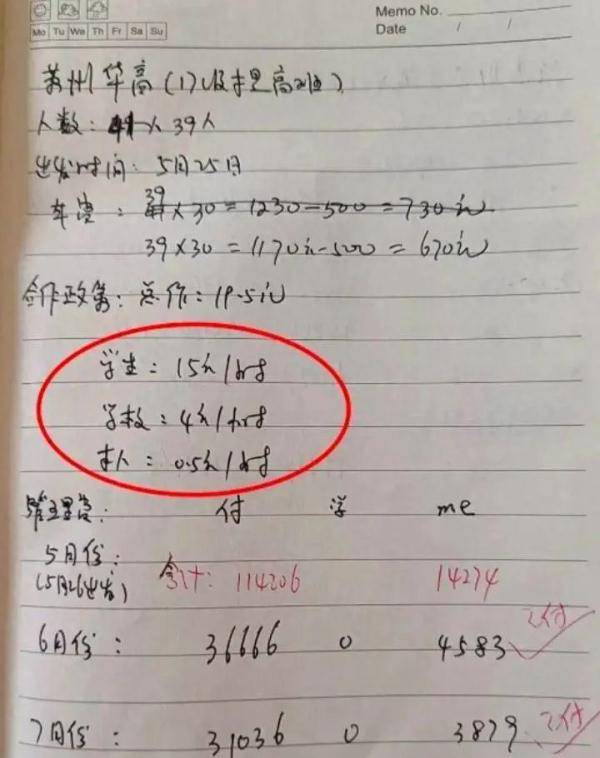 Memo No.
Mo Tu We Th Fr Sa Su
Date / /
苏州华高(17级 高班)
人数: 39人
出发时间: 5月25日
车费: 39 ×30=1230-500=730元
39×30=1170元-500=670元
合作政策: 总价: 19.5元
学生: 15元/时
学校: 4元/时
本人: 0.5元/时
管理费: 付 学 me
5月份:
(5月26出发) 合计: 114206 14274
6月份: 36666 0 4583 已付
7月份: 31036 0 3879 已付